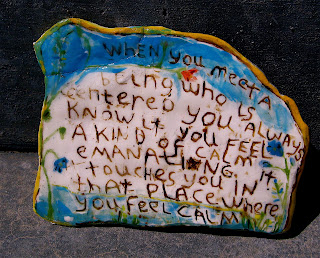 WHEN YOU MEET A
being WHO IS
centered YOU ALWAYS
KNOW IT YOU FEEL
A KIND OF CALM
eMANATIONG. IT
TOUCHES YOU IN
that PLACE where
YOU FEEL CALM